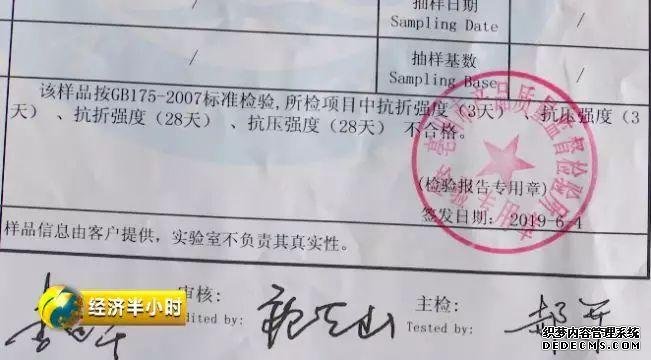 抽样日期
Sampling Date
/
/
抽样基数
Sampling Base
/
该样品按GB175-2007标准检验,所检项目中抗折强度(3天)、抗压强度(3
天)、抗折强度(28天)、抗压强度(28天)不合格。
品质量监督检验所
(检验报告专用章)
签发日期: 2019-6-4
样品信息由客户提供,实验室不负责其真实性。
审核:
dited by:
主检:
Tested by:
经济半小时
织梦内容管理系统
DEDECMS.COM